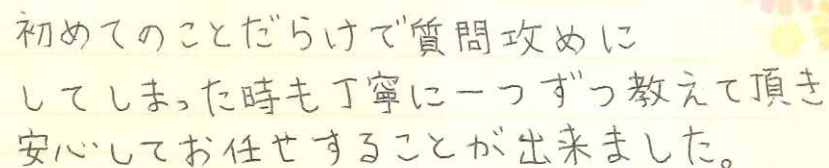 初めてのことだらけで質問攻めに
してしまった時も丁寧に一つずつ教えて頂き
安心してお任せすることが出来ました。